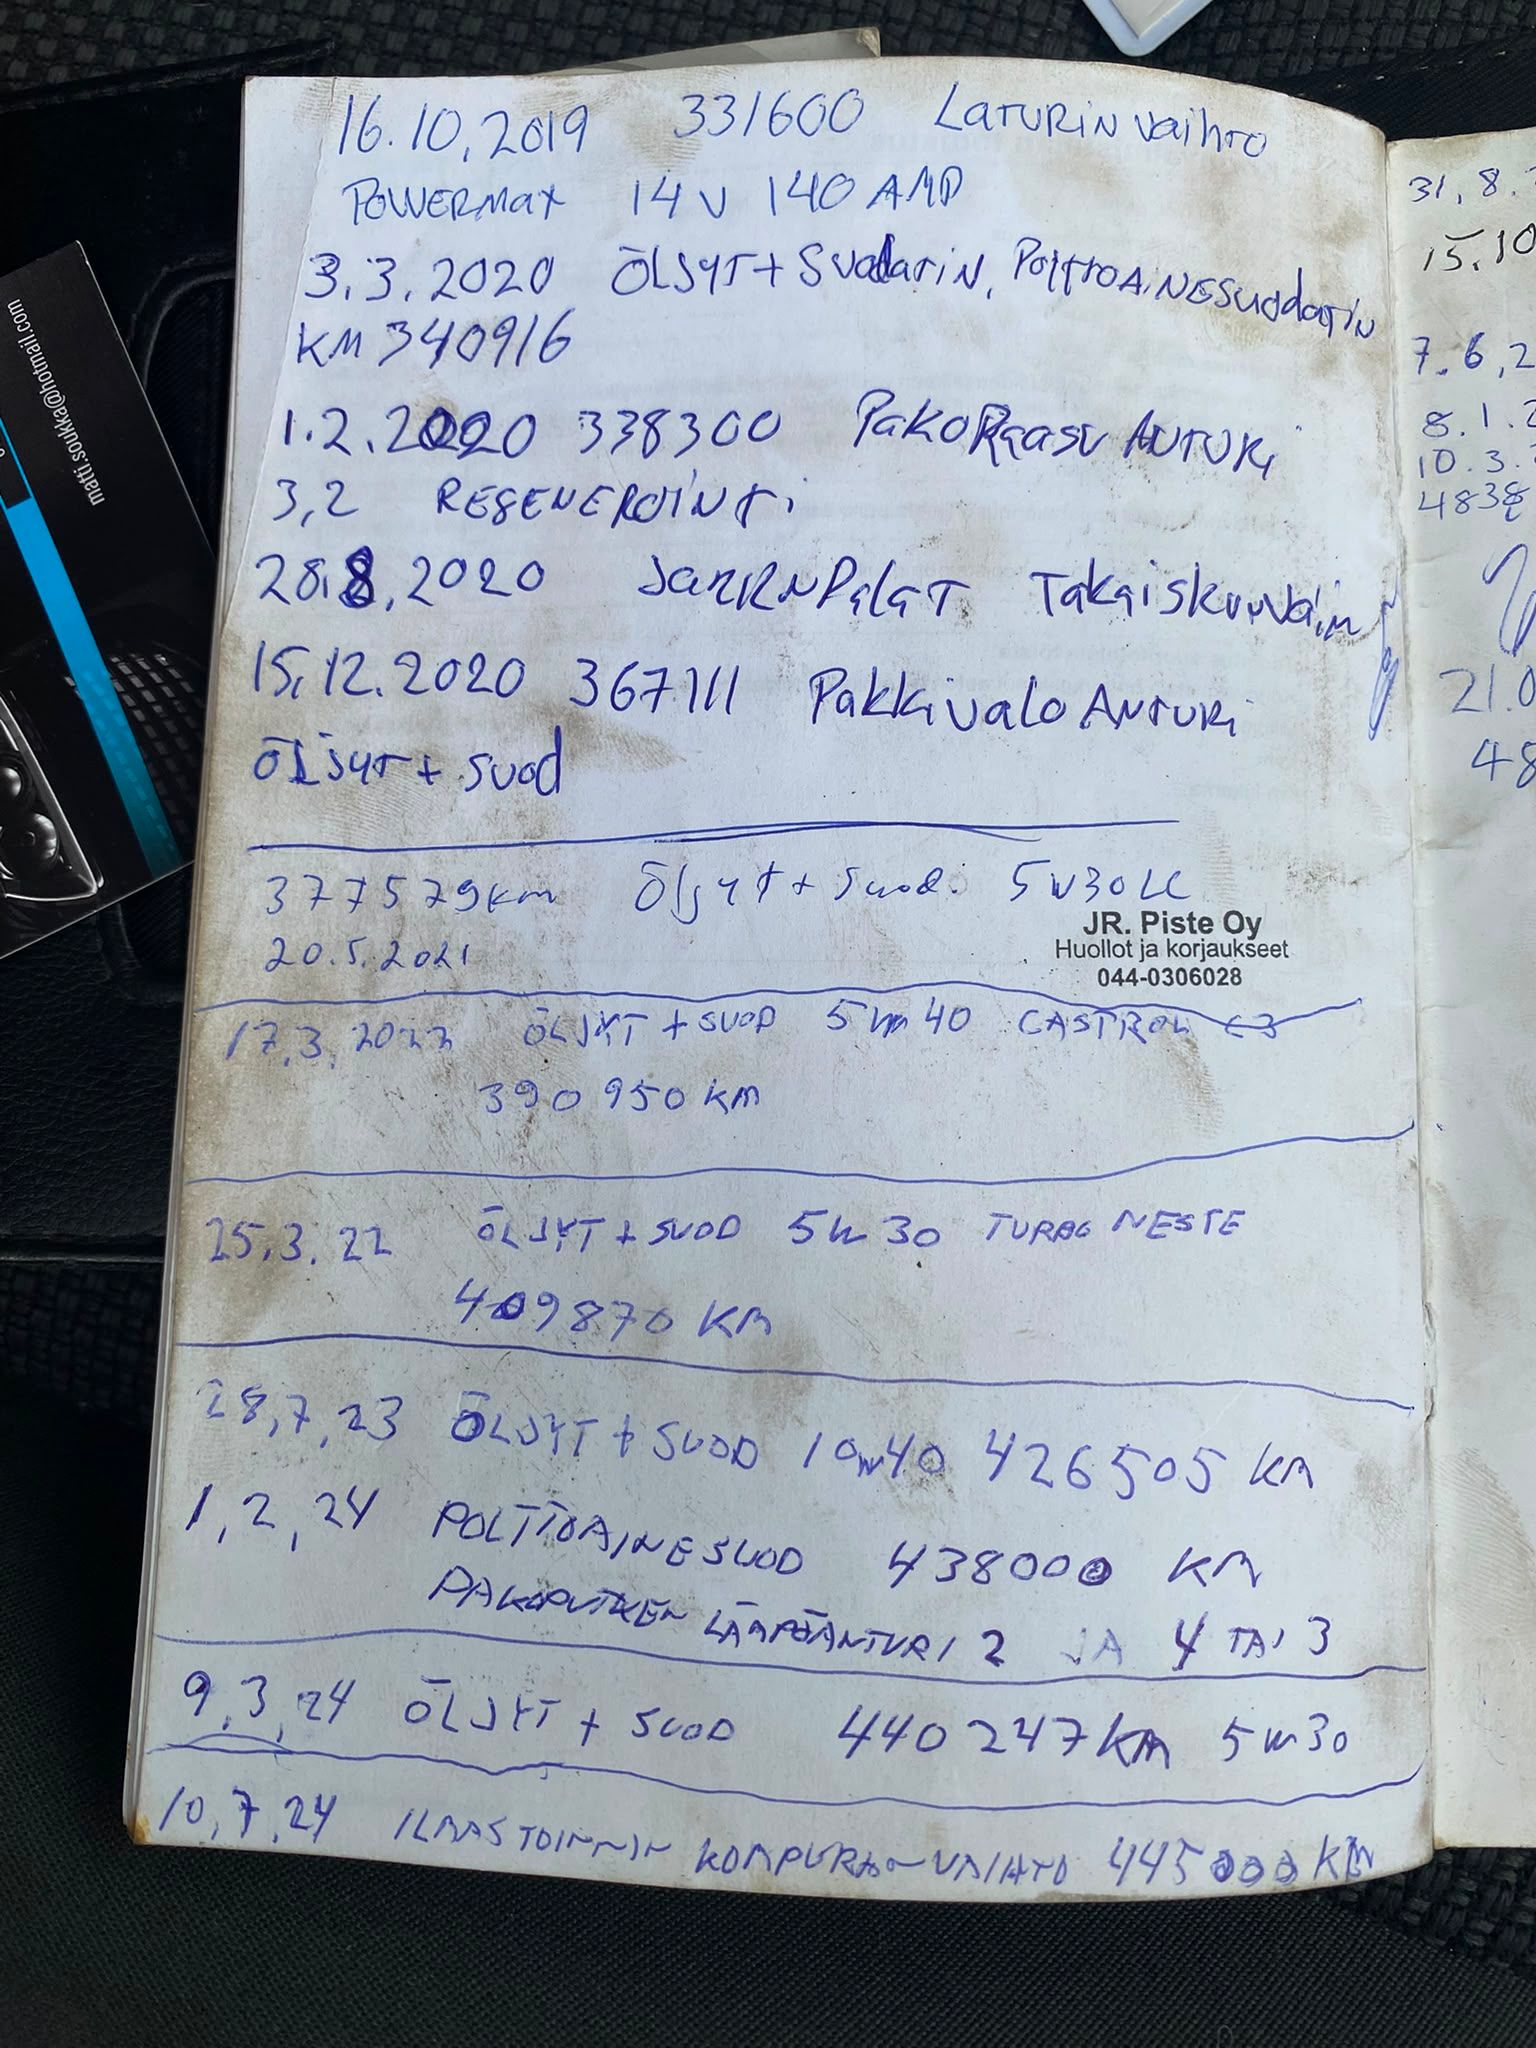 16.10.2019 331600 LATURIN vaihto
POWERMAX 14 V 140 AMP
3.3.2020 ÖLJYT + Suodatin, POLTTOAINESuodatin
KM 340916
1.2.2020 338300 PAKOKaasu ANTURi
3.2 REGENEROINTi
28.8.2020 JARRNPalaT Takaiskunvaim
15.12.2020 367111 Pakkivalo ANTURi
ÖLJYT + suod
377579 km Öljyt + Suod. 5W30LL
20.5.2021
JR. Piste Oy
Huollot ja korjaukseet
044-0306028
17.3.2022 ÖLJYT + SUOD 5W40 CASTROL C3
390 950 KM
25.3.22 ÖLJYT + SUOD 5W30 NESTE
409870 KM
28,7,23 ÖLJYT + SUOD 10W40 426505 KM
1,2,24 POLTTOAINESUOD 438000 KM
PAKOPUTKEN LÄMPÖANTURI 2 JA 4 TAI 3
9,3,24 ÖLJYT + SUOD 440247 KM 5W30
10,7,24 ILMASTOINNIN KOMPURAN VAIHTO 445000 KM
31,8.
15.10
7.6,2
8.1.2
10.3.
4838
21.0
48
matti.soukka@hotmail.com